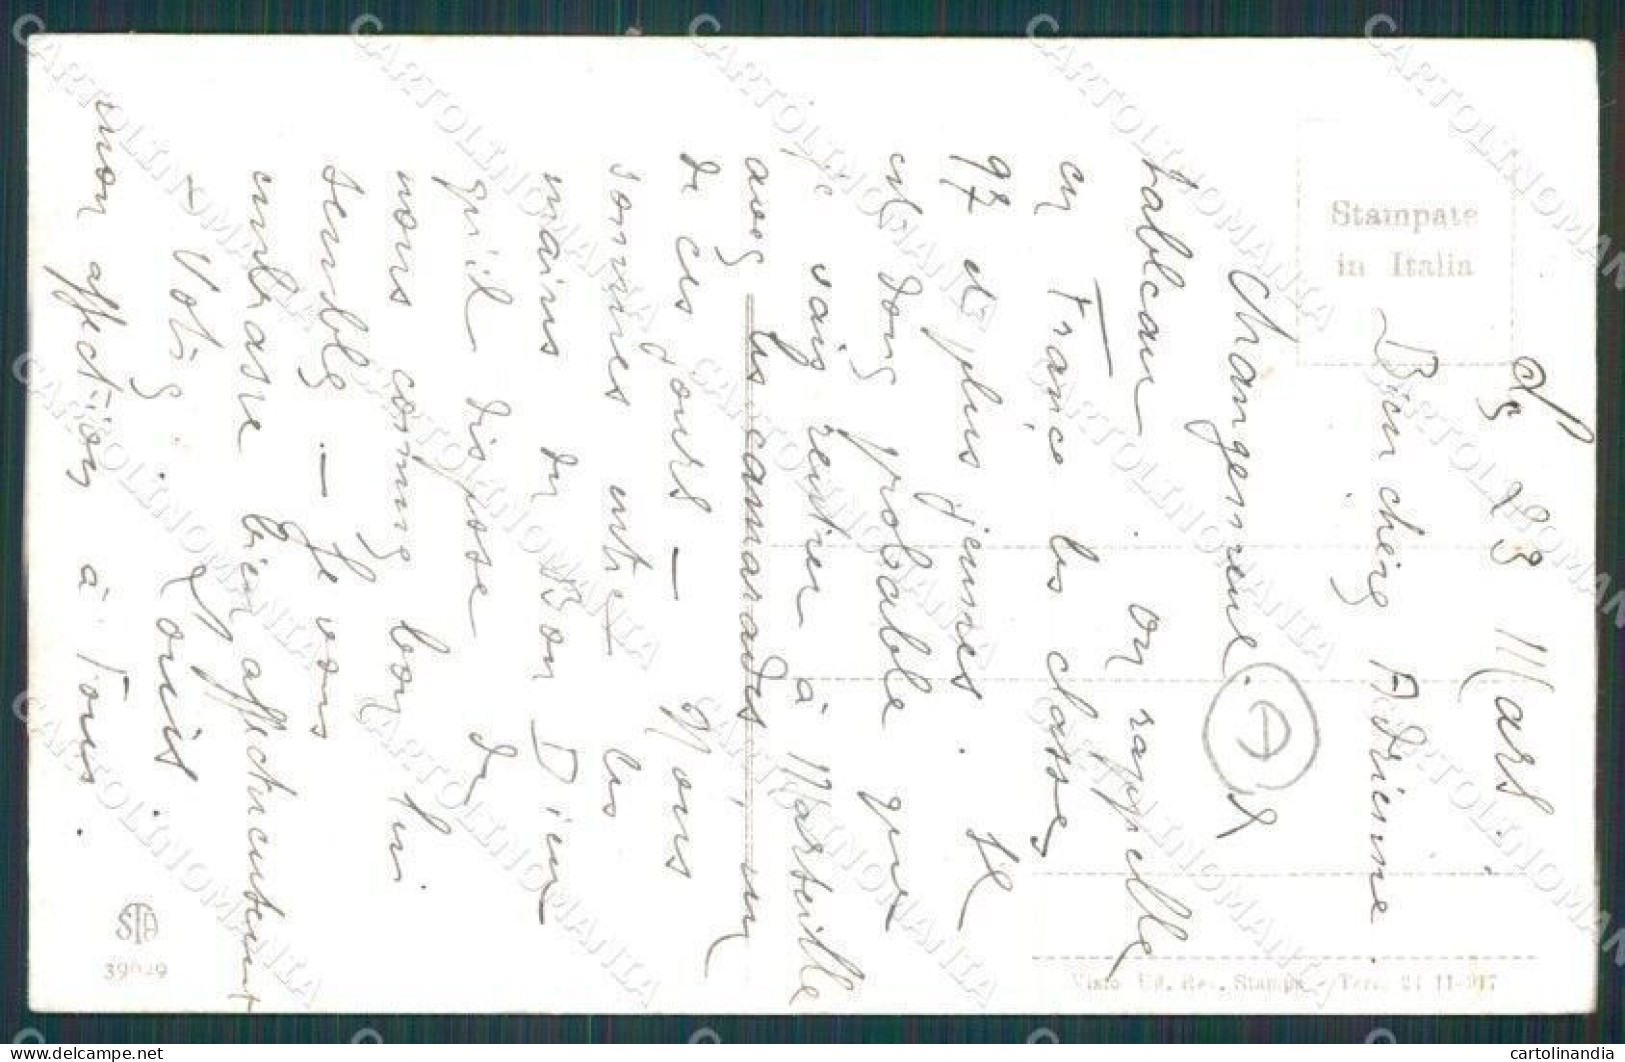 Le 23 Mars.
Bien chère Adrienne.
Changement. A
tableau. on rappelle
en France les classes
97 et plus jeunes. Il
est donc probable que
je vais rentrer à Marseille
avec les camarades, un
de ces jours — Nous
sommes entre les
mains du Bon Dieu
qu'il dispose de
nous comme bon lui
semble. — Je vous
embrasse bien affectueusement
- Votre Louis.
mon affection à Tous.
Stampate
in Italia
Visto Uff. Rev. Stampa - Terni 21-11-917
STA
39029
CARTOLINOMANIA
delcampe.net
cartolinandia